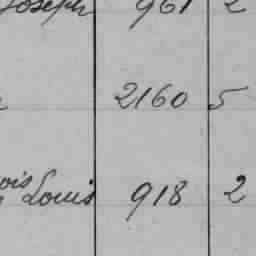 Joseph 961 2
2160 5
ois
Louis 918 2